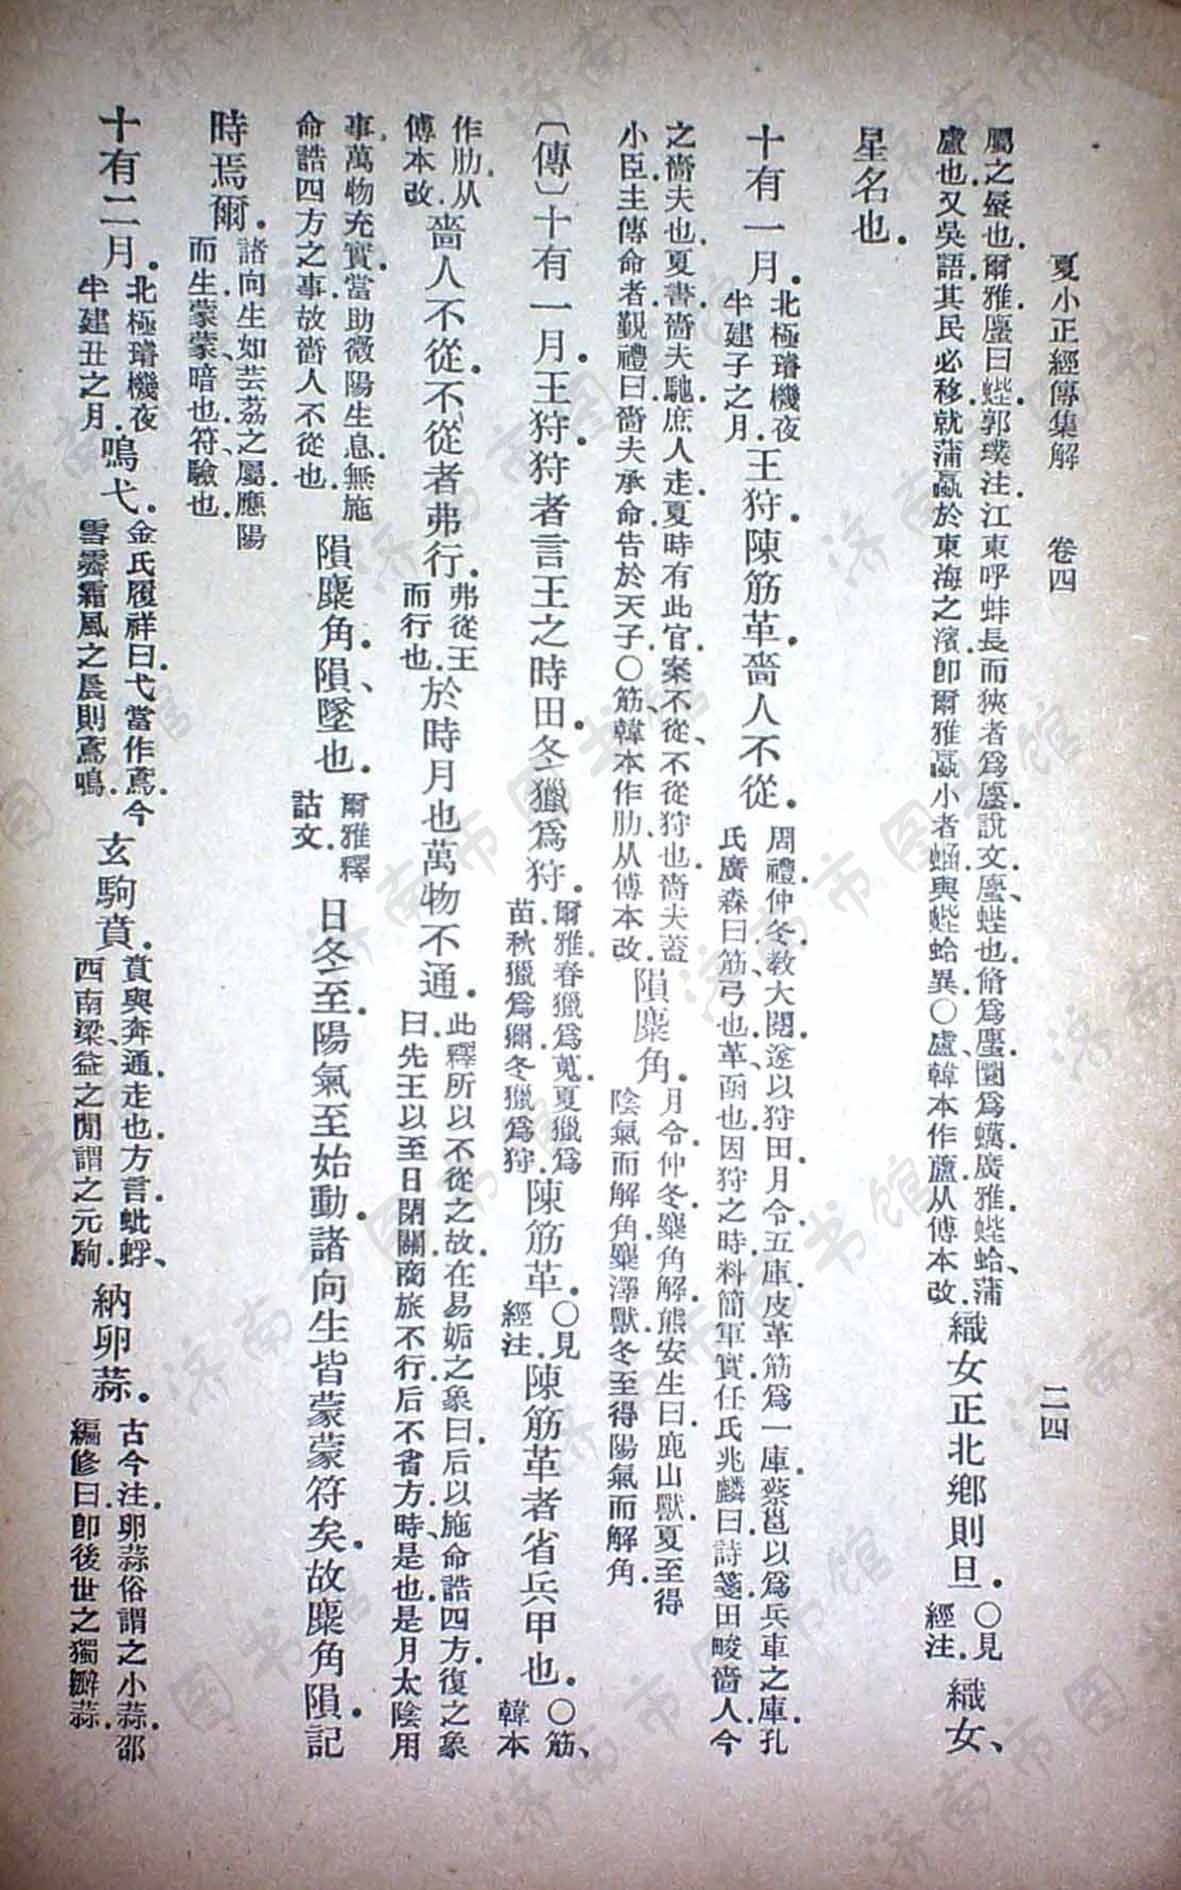 夏小正經傳集解　卷四　二四
屬之蜃也．爾雅．蜃曰蜌．郭璞注．江東呼蚌長而狹者爲蜃．說文．蜃、蜌也．脩爲蜃．圜爲蠣．廣雅．蜌蛤、蒲
盧也．又吳語．其民必移就蒲蠃於東海之濱．卽爾雅蠃小者蜬．與蜌蛤異．〇盧、韓本作蘆．从傅本改．
織女正北鄉則旦．
〇見
經注．
織女、
星名也．
十有一月．
北極璿機夜
半建子之月．
王狩．陳筋革．嗇人不從．
周禮．仲冬．教大閱．遂以狩田．月令．五庫．皮革筋爲一庫．蔡邕以爲兵車之庫．孔
氏廣森曰．筋、弓也．革、函也．因狩之時．料簡軍實．任氏兆麟曰．詩箋．田畯嗇人．今
之嗇夫也．夏書．嗇夫馳．庶人走．夏時有此官．案不從、不從狩也．嗇夫蓋
小臣．主傳命者．覲禮曰．嗇夫承命告於天子．〇筋、韓本作肋、从傅本改．
隕麋角．
月令．仲冬．麋角解．熊安生曰．鹿山獸．夏至得
陰氣而解角．麋澤獸．冬至得陽氣而解角．
〔傳〕十有一月．王狩．狩者．言王之時田．冬獵爲狩．
爾雅．春獵爲蒐．夏獵爲
苗．秋獵爲獮．冬獵爲狩．
陳筋革．
〇見
經注．
陳筋革者．省兵甲也．
〇筋、
韓本
作肋．从
傅本改．
嗇人不從．不從者．弗行．
弗從王
而行也．
於時月也．萬物不通．
此釋所以不從之故．在易姤之象曰．后以施命誥四方．復之象
曰．先王以至日閉關．商旅不行．后不省方．時、是也．是月太陰用
事．萬物充實．當助微陽生息．無施
命誥四方之事．故嗇人不從也．
隕麋角．隕、墜也．
爾雅釋
詁文．
日冬至．陽氣至．始動．諸向生皆蒙蒙符矣．故麋角隕．記
時焉爾．
諸向生．如芸荔之屬．應陽
而生．蒙蒙、暗也．符、驗也．
十有二月．
北極璿機夜
半建丑之月．
鳴弋．
金氏履祥曰．弋當作鳶．今
雪霽霜風之晨．則鳶鳴．
玄駒賁．
賁與奔通．走也．方言．蚍蜉、
西南梁益之閒謂之元駒．
納卵蒜．
古今注．卵蒜．俗謂之小蒜．邵
編修曰．卽後世之獨瓣蒜．